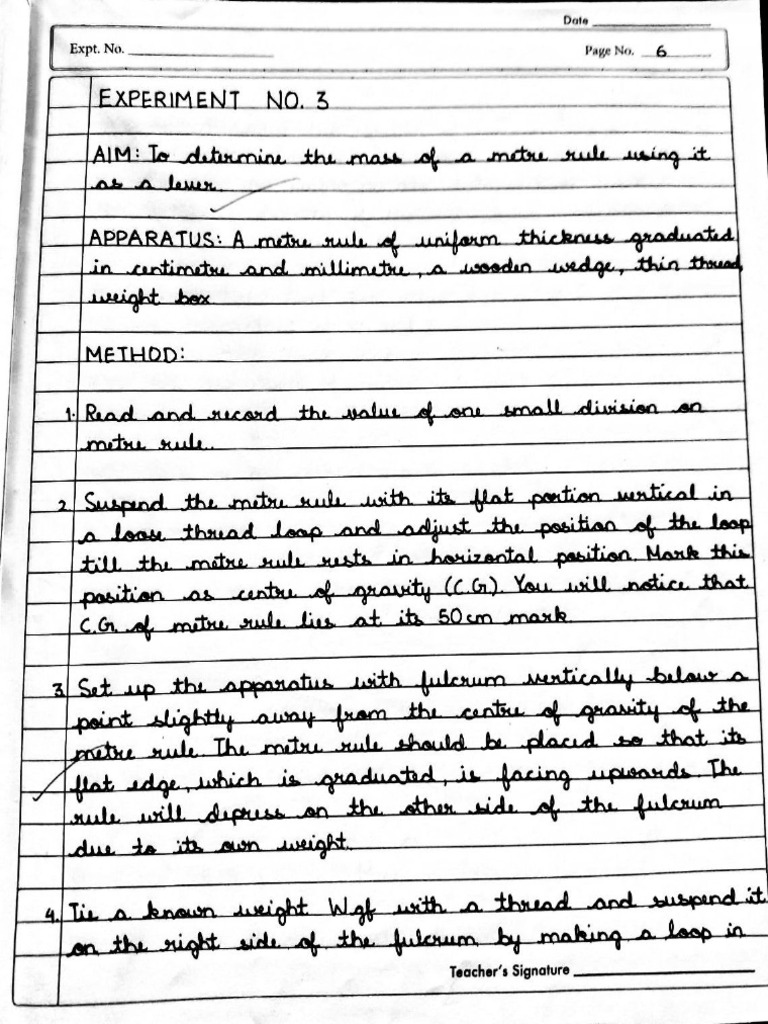 Date
Expt. No.
Page No. 6
EXPERIMENT NO. 3
AIM: To determine the mass of a metre rule using it
as a lever.
APPARATUS: A metre rule of uniform thickness graduated
in centimetre and millimetre, a wooden wedge, thin thread,
weight box
METHOD:
1. Read and record the value of one small division on
metre rule.
2. Suspend the metre rule with its flat portion vertical in
a loose thread loop and adjust the position of the loop
till the metre rule rests in horizontal position. Mark this
position as centre of gravity (C.G). You will notice that
C.G. of metre rule lies at its 50 cm mark
3. Set up the apparatus with fulcrum vertically below a
point slightly away from the centre of gravity of the
metre rule. The metre rule should be placed so that its
flat edge, which is graduated, is facing upwards. The
rule will depress on the other side of the fulcrum
due to its own weight.
4. Tie a known weight Wgf with a thread and suspend it
on the right side of the fulcrum by making a loop in
Teacher's Signature